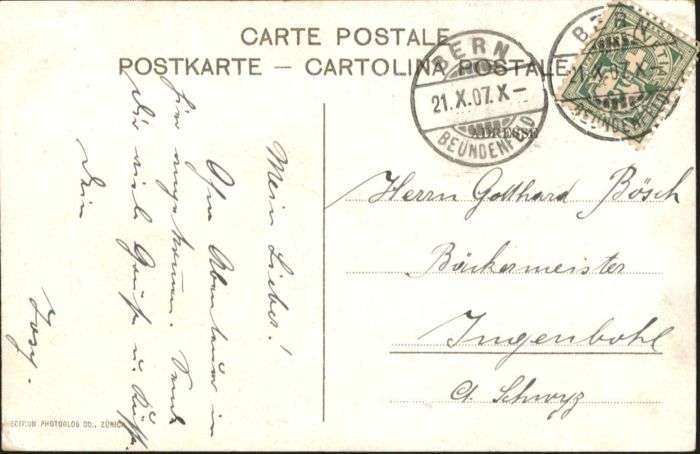 CARTE POSTALE
POSTKARTE — CARTOLINA POSTALE
BERN
21.X.07.X—
BEUNDENFELD
BERN
21.X.07.X—
BEUNDENFELD
HELVETIA
ADRESSE
Herrn Gotthard Bösch
Bäckermeister
Ingenbohl
Ct. Schwyz
Mein Lieber!
Ohn Abenteuer in
hier angekommen.
Dir viele Grüße u. Küsse
Dein
Josy.
PHOTOGLOB CO., ZÜRICH